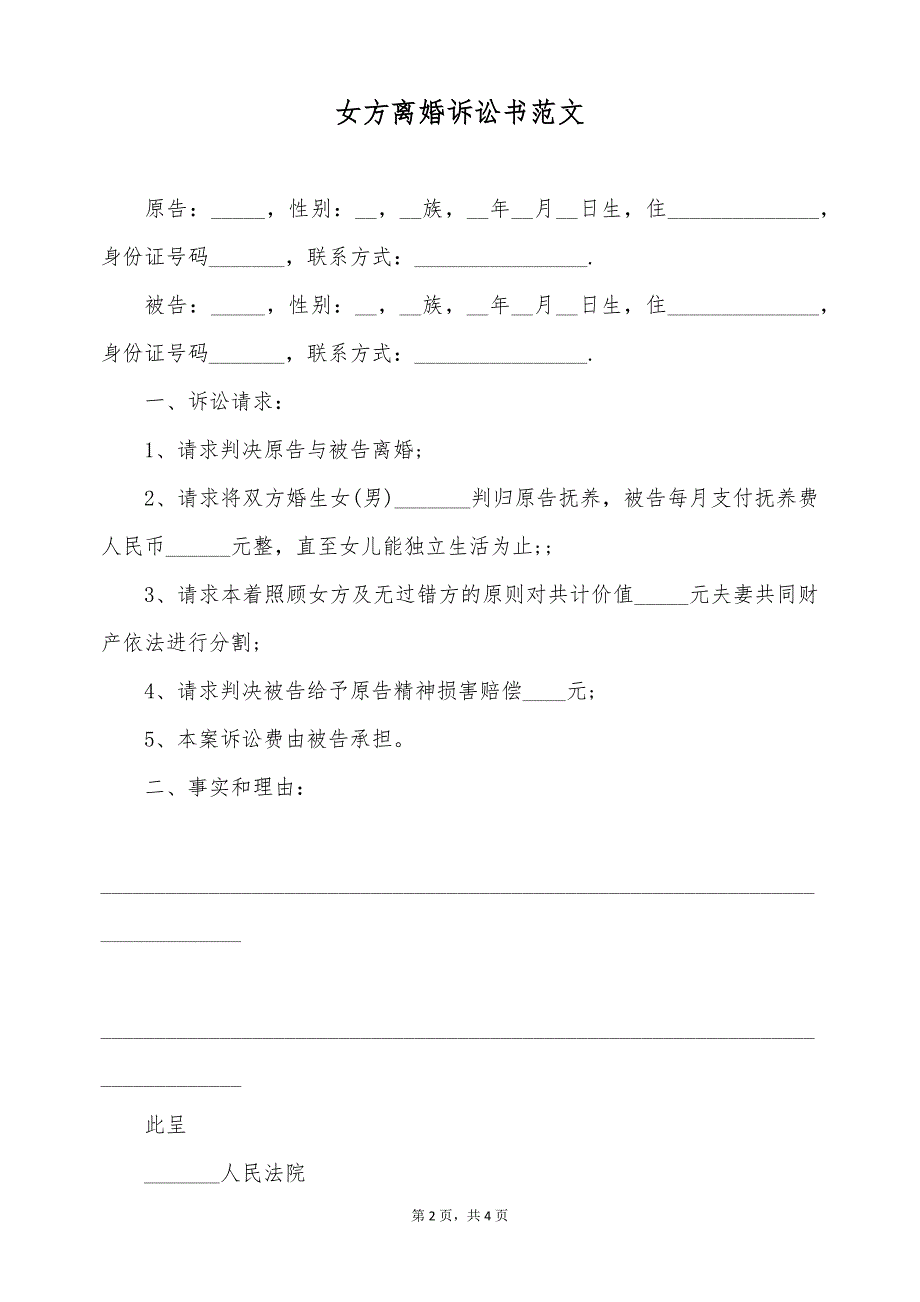 女方离婚诉讼书范文
原告：_____，性别：__，__族，__年__月__日生，住______________，
身份证号码_______，联系方式：________________.
被告：_____，性别：__，__族，__年__月__日生，住______________，
身份证号码_______，联系方式：________________.
一、诉讼请求：
1、请求判决原告与被告离婚;
2、请求将双方婚生女(男)_______判归原告抚养，被告每月支付抚养费
人民币______元整，直至女儿能独立生活为止;;
3、请求本着照顾女方及无过错方的原则对共计价值_____元夫妻共同财
产依法进行分割;
4、请求判决被告给予原告精神损害赔偿____元;
5、本案诉讼费由被告承担。
二、事实和理由：
__________________________________________________________________
_____________
__________________________________________________________________
_____________
此呈
_______人民法院
第 2 页，共 4 页